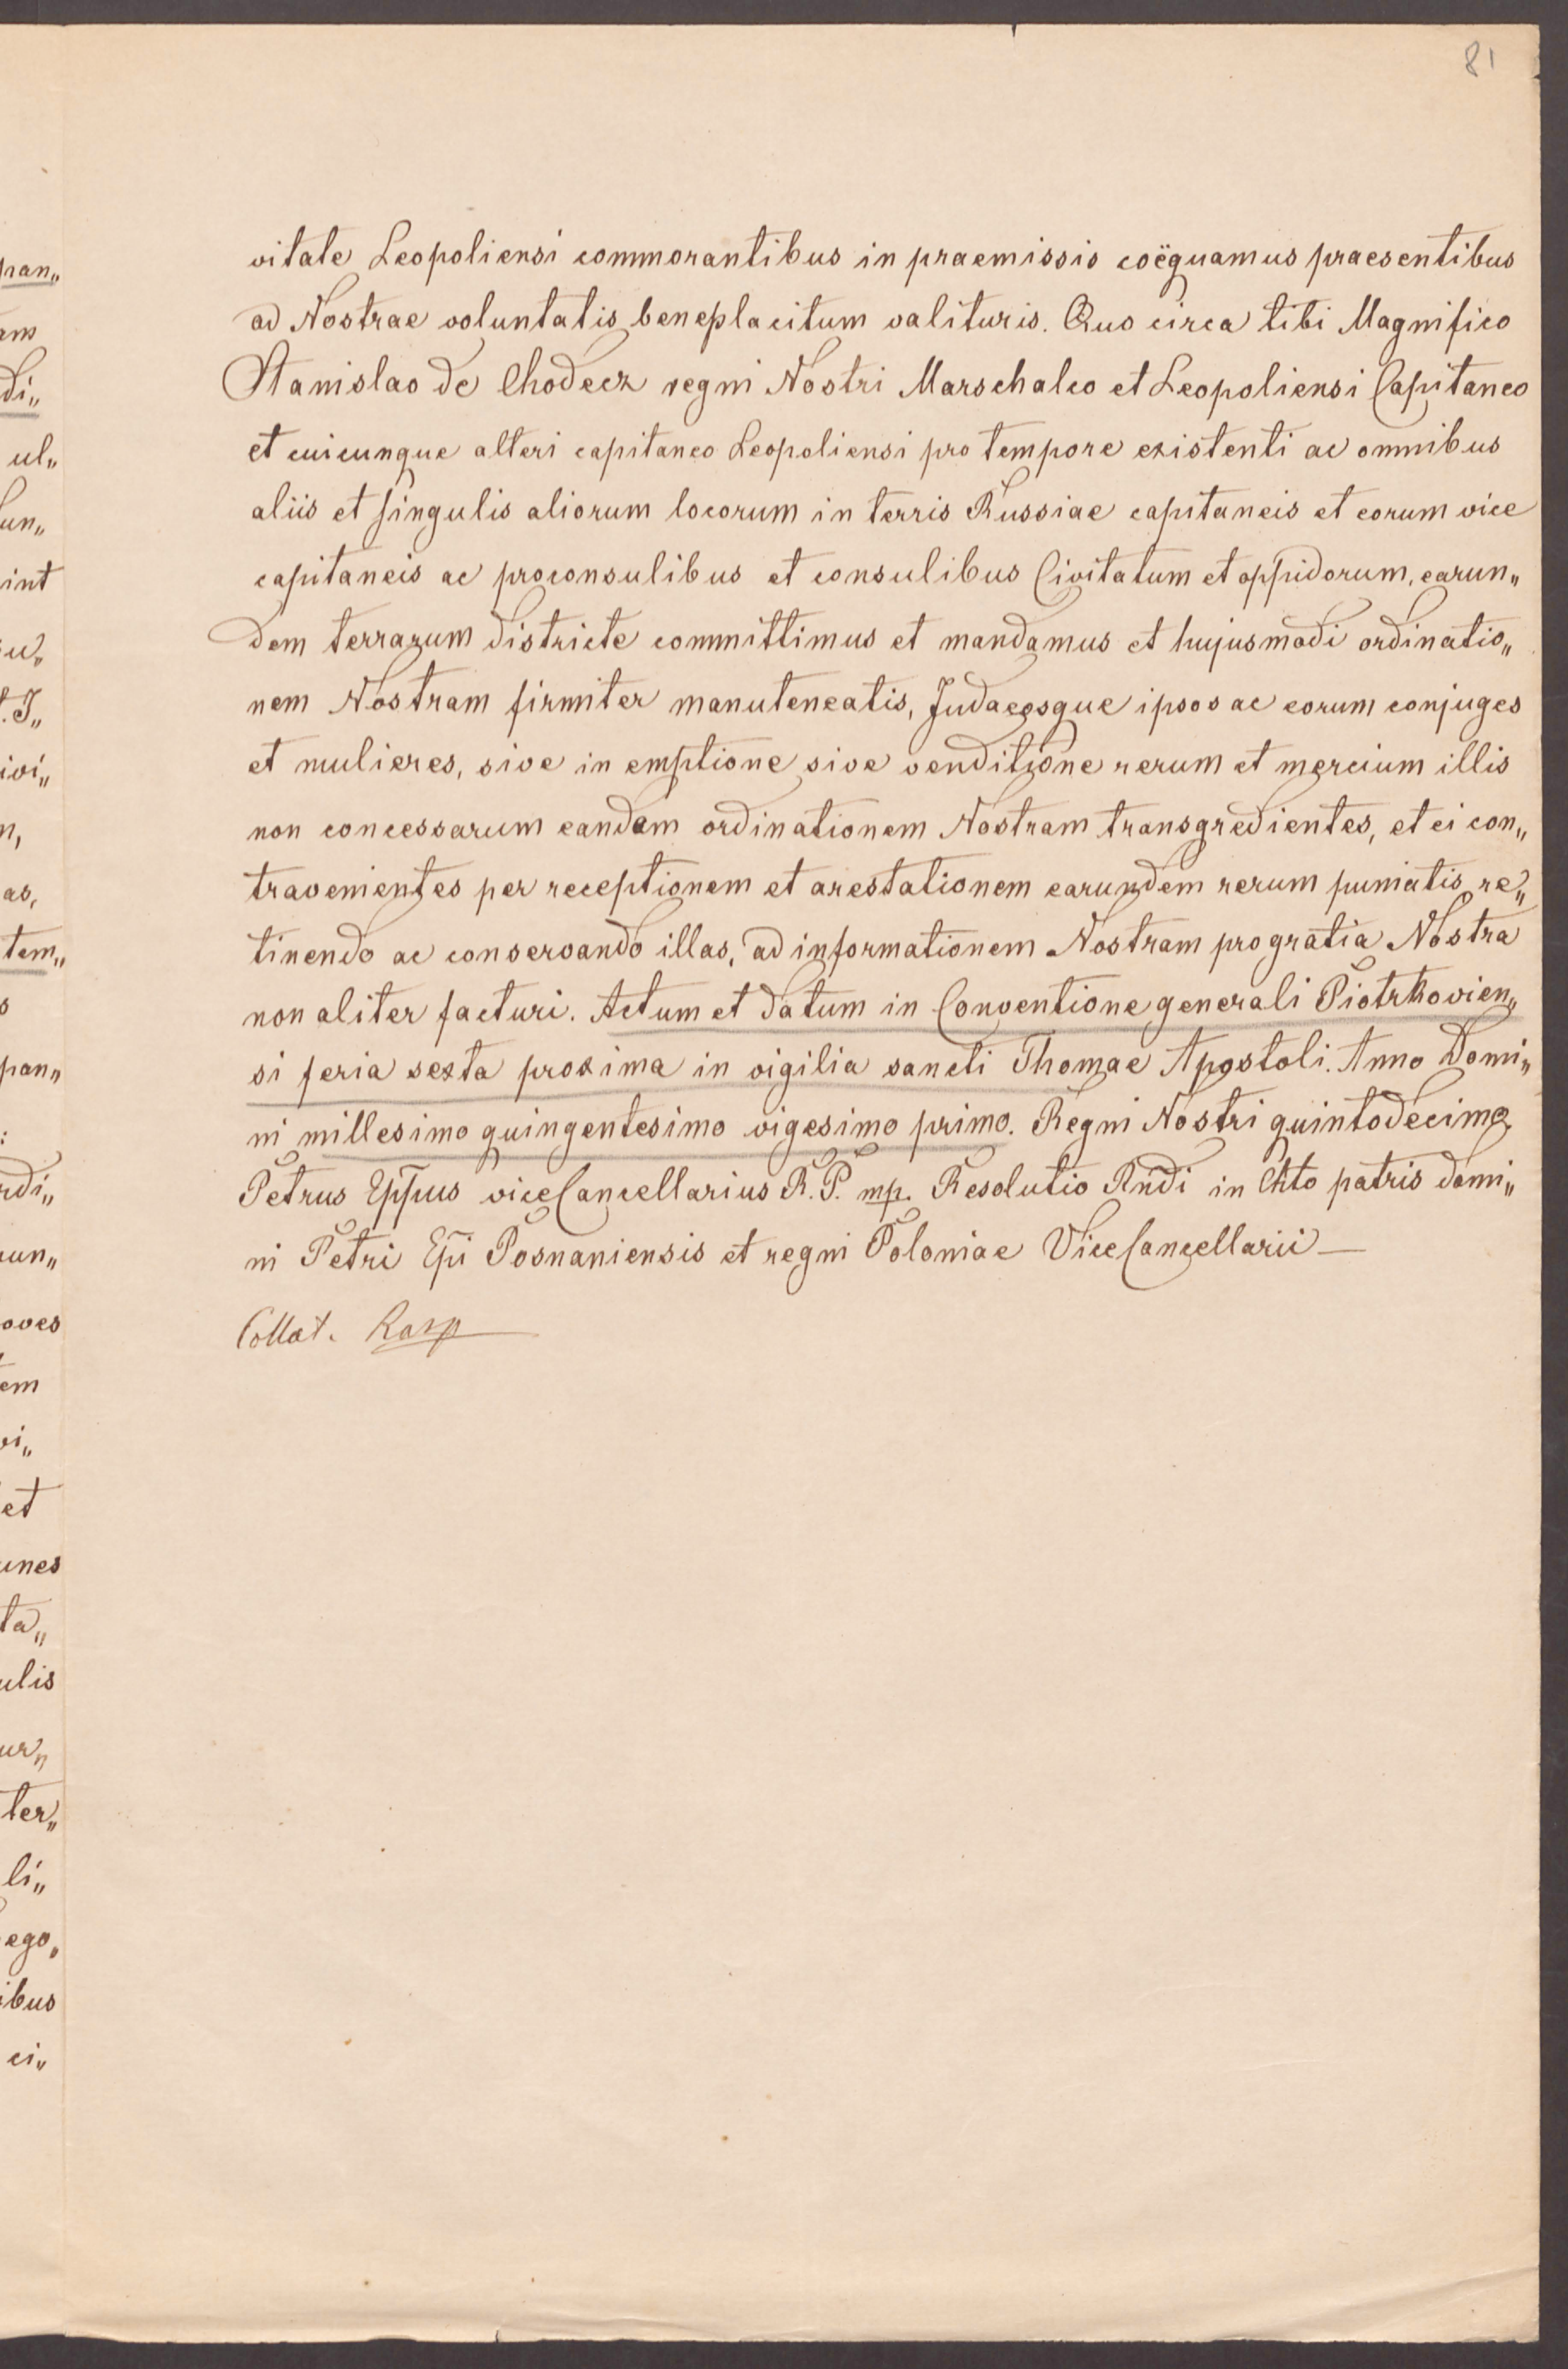 81
vitate Leopoliensi commorantibus in praemissis coëquamus praesentibus
ad Nostrae voluntatis beneplacitum valituris. Quo circa tibi Magnifico
Stanislao de Chodecz regni Nostri Marschalco et Leopoliensi Capitaneo
et cuicunque alteri capitaneo Leopoliensi pro tempore existenti ac omnibus
aliis et singulis aliorum locorum in terris Russiae capitaneis et eorum vice
capitaneis ac proconsulibus et consulibus Civitatum et oppidorum, earun„
dem terrarum districte committimus et mandamus et hujusmodi ordinatio„
nem Nostram firmiter manuteneatis, Judaeosque ipsos ac eorum conjuges
et mulieres, sive in emptione sive venditione rerum et mercium illis
non concessarum eandem ordinationem Nostram transgredientes, et ei con„
travenientes per receptionem et arestationem earundem rerum puniatis re„
tinendo ac conservando illas, ad informationem Nostram pro gratia Nostra
non aliter facturi. Actum et datum in Conventione generali Piotrkovien„
si feria sexta proxima in vigilia sancti Thomae Apostoli. Anno Domi„
ni millesimo quingentesimo vigesimo primo. Regni Nostri quintodecimo
Petrus Eppus viceCancellarius R. P. mp. Resolutio Rñdi in Chto patris domi„
ni Petri Epi Posnaniensis et regni Poloniae ViceCancellarii —
Collat. Rasp